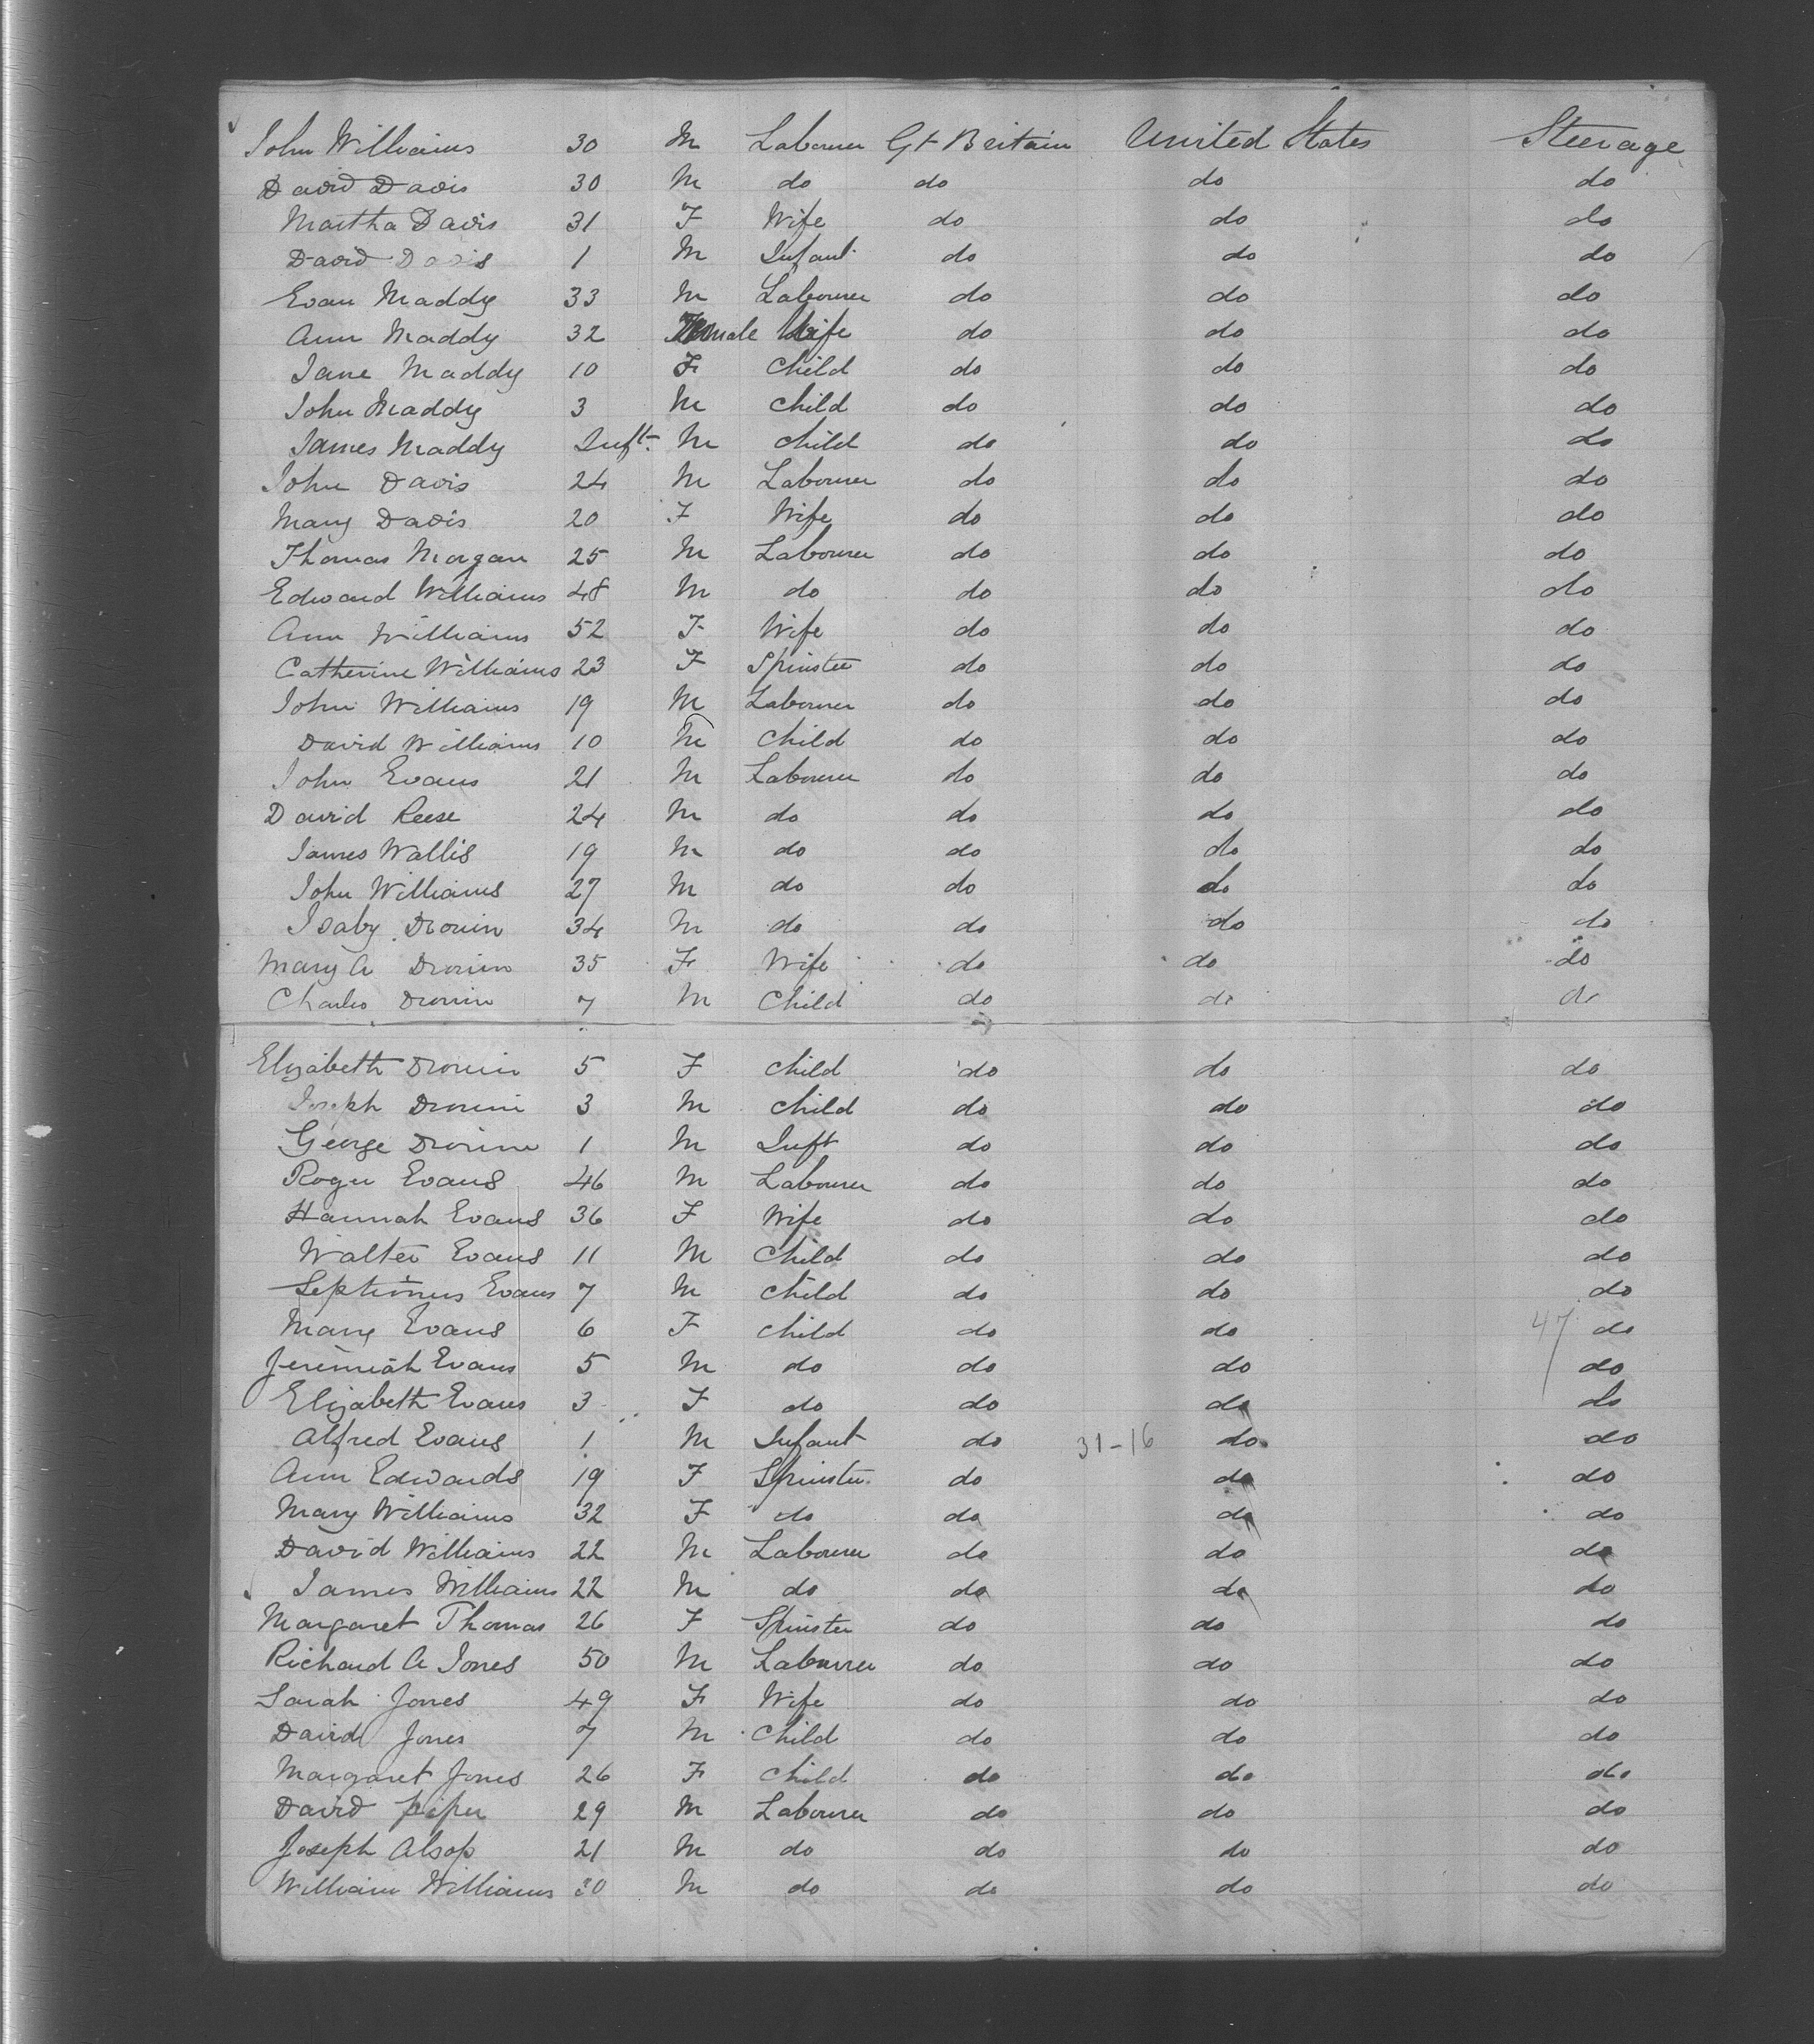 John Williams 30 M Labourer Gt Britain United States Steerage
David Davis 30 M do do do do
Martha Davis 31 F Wife do do do
David Davis 1 M Infant do do do
Evan Maddy 33 M Labourer do do do
Ann Maddy 32 Female Wife do do do
Jane Maddy 10 F Child do do do
John Maddy 3 M Child do do do
James Maddy Inft. M Child do do do
John Davis 24 M Labourer do do do
Mary Davis 20 F Wife do do do
Thomas Morgan 25 M Labourer do do do
Edward Williams 48 M do do do do
Ann Williams 52 F Wife do do do
Catherine Williams 23 F Spinster do do do
John Williams 19 M Labourer do do do
David Williams 10 M Child do do do
John Evans 21 M Labourer do do do
David Reese 24 M do do do do
James Wallis 19 M do do do do
John Williams 27 M do do do do
Isaby 34 M do do do do
Mary A 35 F Wife do do do
Charles 7 M Child do do do
Elizabeth 5 F Child do do do
Joseph 3 M Child do do do
George 1 M Inft do do do
Roger Evans 46 M Labourer do do do
Hannah Evans 36 F Wife do do do
Walter Evans 11 M Child do do do
Septimus Evans 7 M Child do do do
Mary Evans 6 F Child do do 47 do
Jeremiah Evans 5 M do do do do
Elizabeth Evans 3 F do do do do
Alfred Evans 1 M Infant do 31-16 do do
Ann Edwards 19 F Spinster do do do
Mary Williams 32 F do do do do
David Williams 22 M Labourer do do do
James Williams 22 M do do do do
Margaret Thomas 26 F Spinster do do do
Richard A Jones 50 M Labourer do do do
Sarah Jones 49 F Wife do do do
David Jones 7 M Child do do do
Margaret Jones 26 F Child do do do
David Piper 29 M Labourer do do do
Joseph Alsop 21 M do do do do
William Williams 30 M do do do do